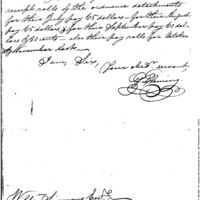 receipt rolls of the ordnance detachments
for their July pay 65 dollars – for their August
pay 65 dollars & for their September pay 60 dol-
lars & 50 cents – also their pay rolls for October
& November last.
I am, Sir,
Your obedt servant,
Fleming
Wm Simmons Esqr